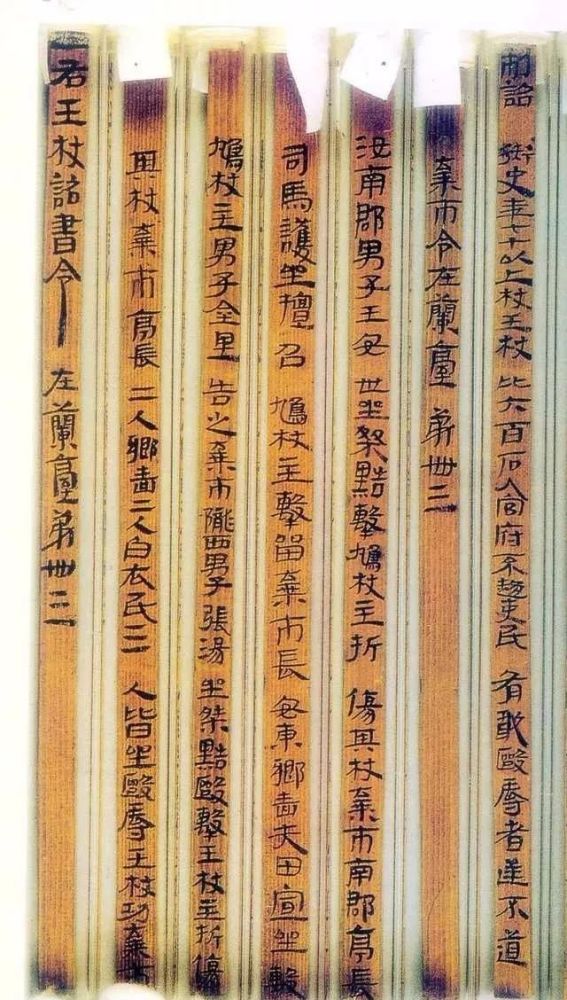 制詔 御史年七十以上杖王杖 比六百石入官府不趨吏民 有敢毆辱者逆不道
棄市令在蘭臺 第卌三
汝南郡男子王安 世坐桀黠擊鳩杖主折 傷其杖棄市南郡亭長
司馬護坐擅 召 鳩杖主擊留棄市長 安東鄉嗇夫田宣坐毄
鳩杖主男子金里 告之棄市隴西男子張湯 坐桀黠毆擊王杖主折傷
其杖棄市亭長 二人鄉嗇二人白衣民三 人皆坐毆辱王杖功棄市
右王杖詔書令 在蘭臺第卌三